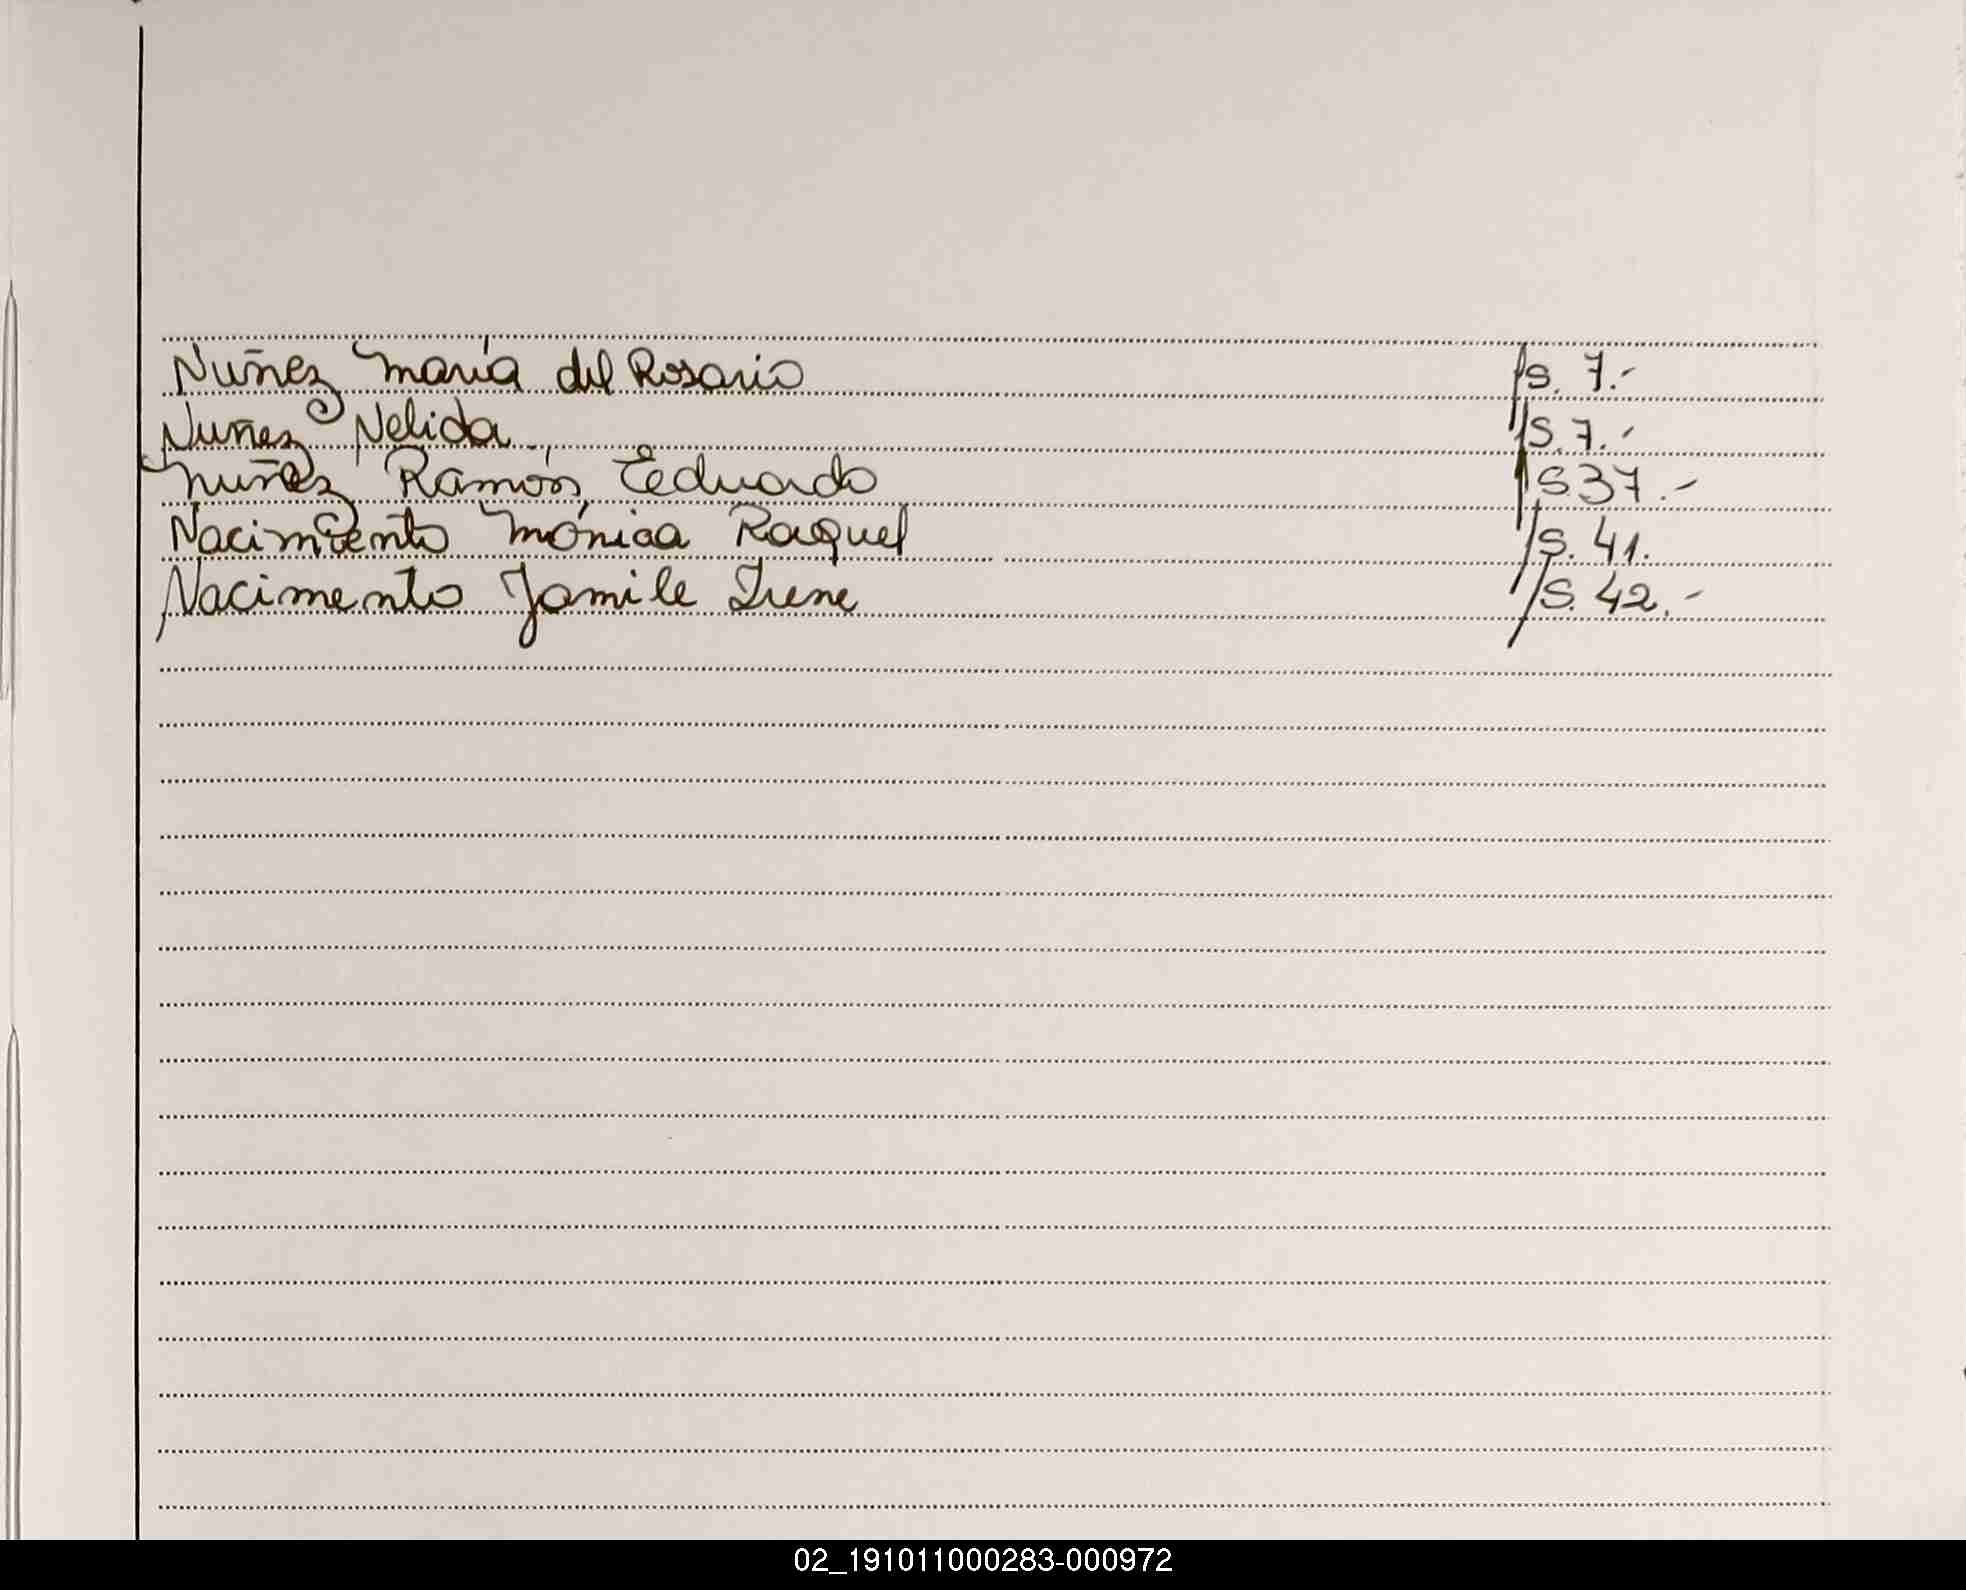 Nuñez María del Rosario fs. 7.-
Nuñez Nelida fs. 7.-
Nuñez Ramón Eduardo fs 37.-
Nacimiento Mónica Raquel fs. 41.
Nacimento Jamile Irene fs. 42.-
02_191011000283-000972